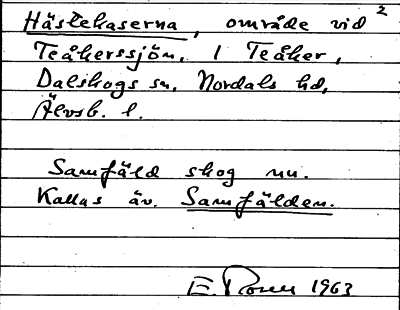 Hästekaserna, område vid 2
Teåkerssjön, i Teåker,
Dalskogs sn. Nordals hd,
Älvsb. l.
Samfäld skog nu.
Kallas äv. Samfälden.
E. 1963